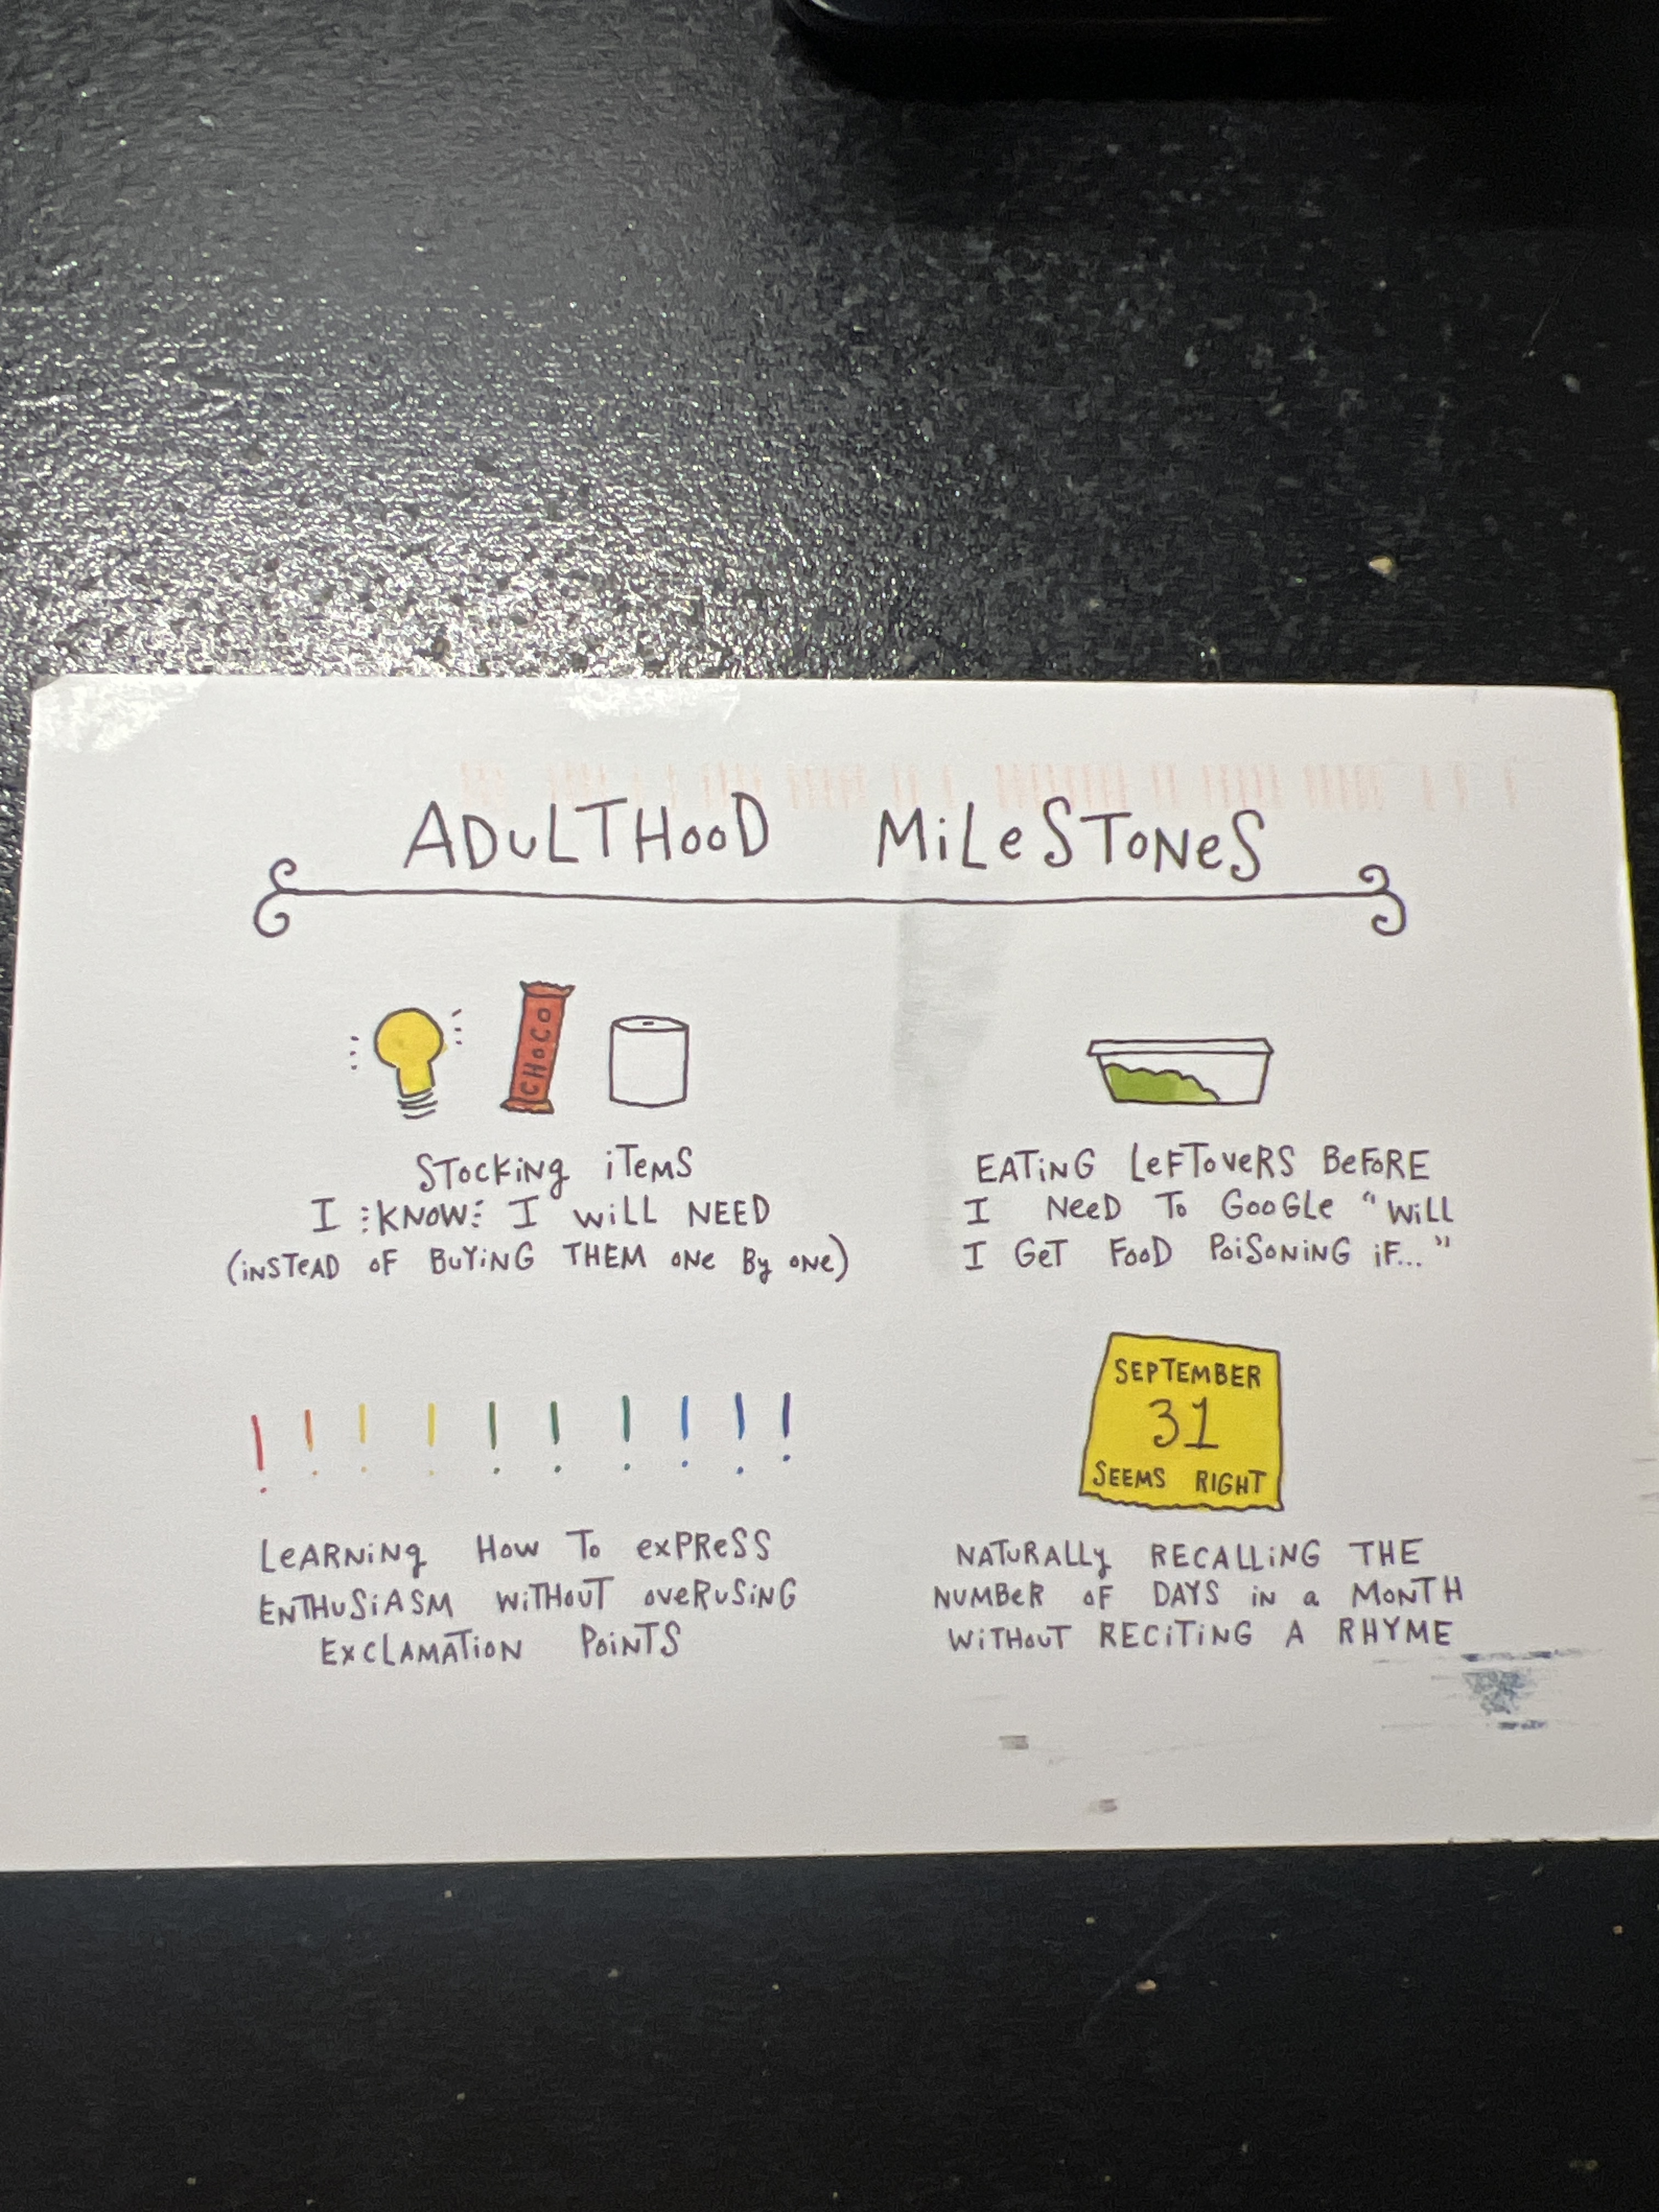 ADULTHOOD MILESTONES
CHOCO
STOCKING ITEMS
I KNOW I WILL NEED
(INSTEAD OF BUYING THEM ONE BY ONE)
EATING LEFTOVERS BEFORE
I NEED TO GOOGLE "WILL
I GET FOOD POISONING IF..."
! ! ! ! ! ! ! ! ! !
LEARNING HOW TO EXPRESS
ENTHUSIASM WITHOUT OVERUSING
EXCLAMATION POINTS
SEPTEMBER
31
SEEMS RIGHT
NATURALLY RECALLING THE
NUMBER OF DAYS IN a MONTH
WITHOUT RECITING A RHYME